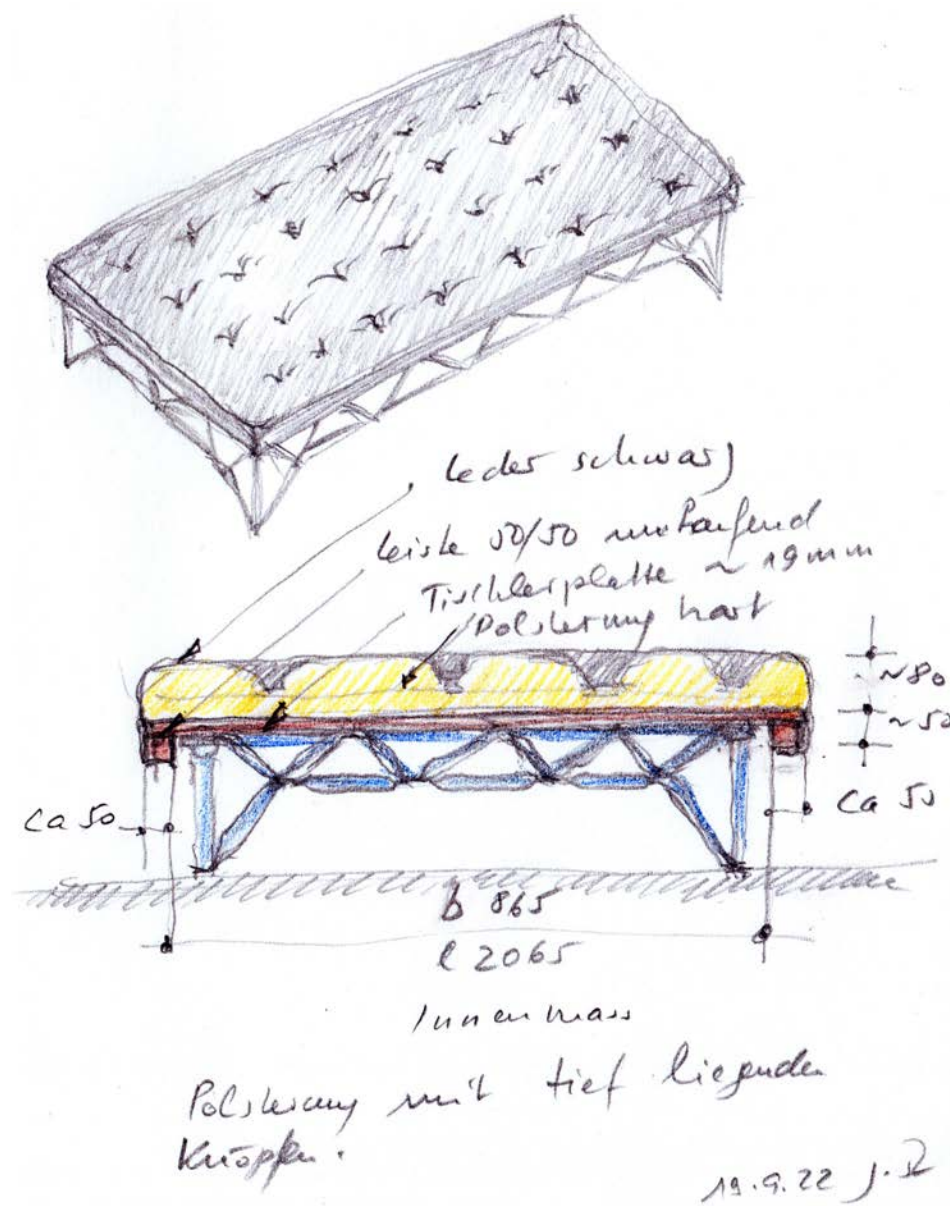 Leder schwarz
Leiste 50/50 umlaufend
Tischlerplatte ~ 19mm
Polsterung hart
~80
~50
ca 50
ca 50
b 865
l 2065
Innenmass
Polsterung mit tief liegenden
Knöpfen.
19.9.22 J.